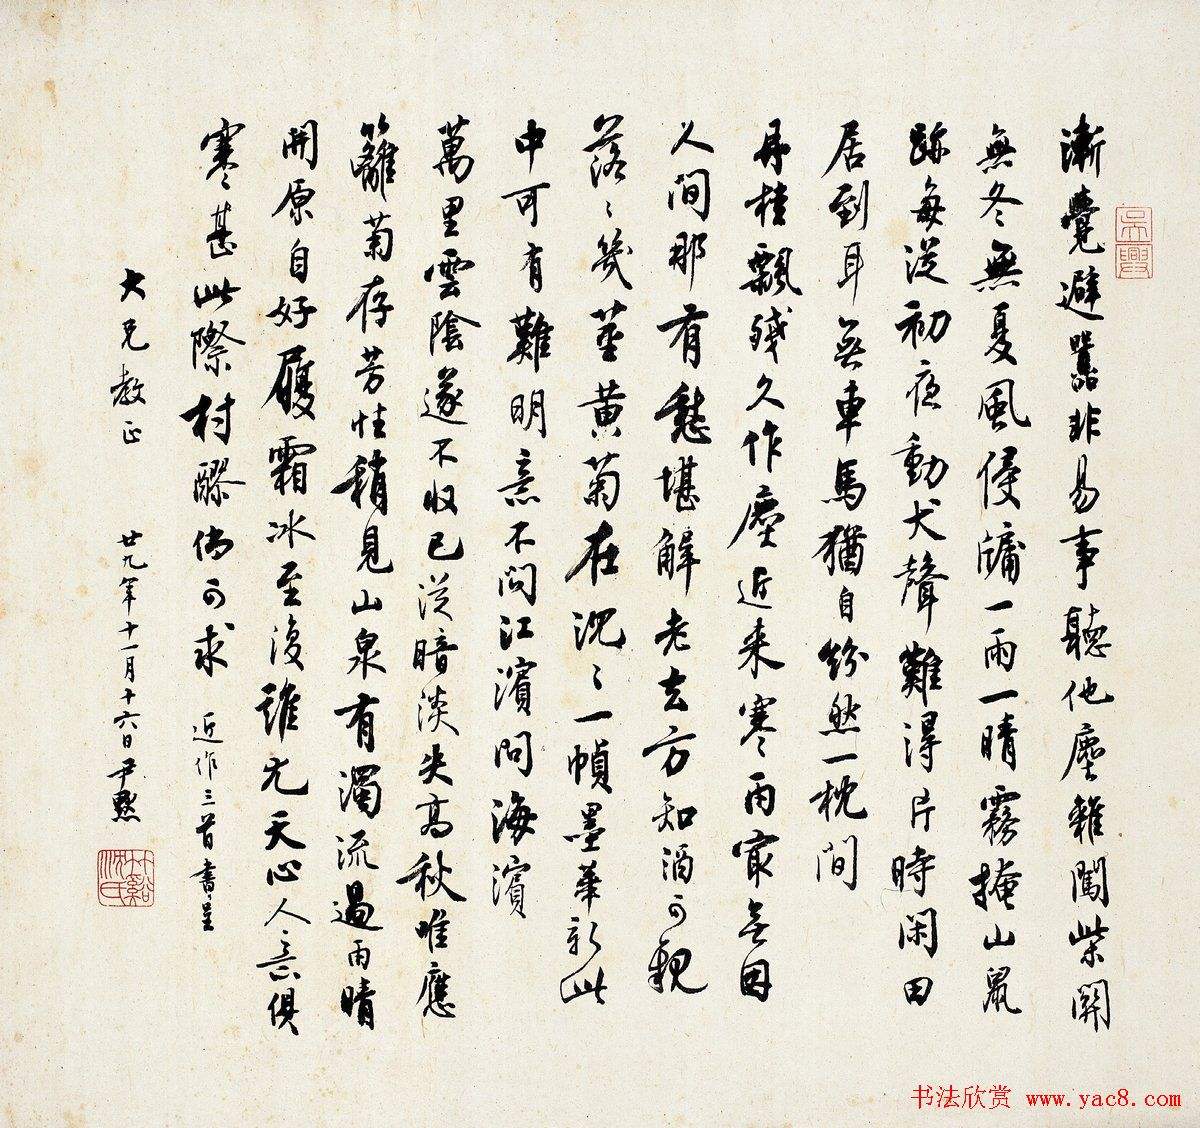 漸覺避囂非易事聽他塵雜闖柴關
無冬無夏風侵牖一雨一晴霧掩山鼠
跡每從初夜動犬聲難得片時閑田
居到耳無車馬猶自紛然一枕間
丹桂飄殘久作塵近来寒雨寂無因
人間那有愁堪解老去方知酒可親
落〻幾莖黃菊在沉〻一幀墨華新此
中可有難明意不問江濱問海濱
萬里雲陰遂不收已從暗淡失高秋唯應
籬菊存芳性稍見山泉有濁流過雨晴
開原自好履霜冰至復誰尤天心人意俱
寒甚此際村醪倘可求 近作三首書呈
大兄教正 廿九年十一月十六日尹默
吳興
竹谿沈氏
书法欣赏 www.yac8.com